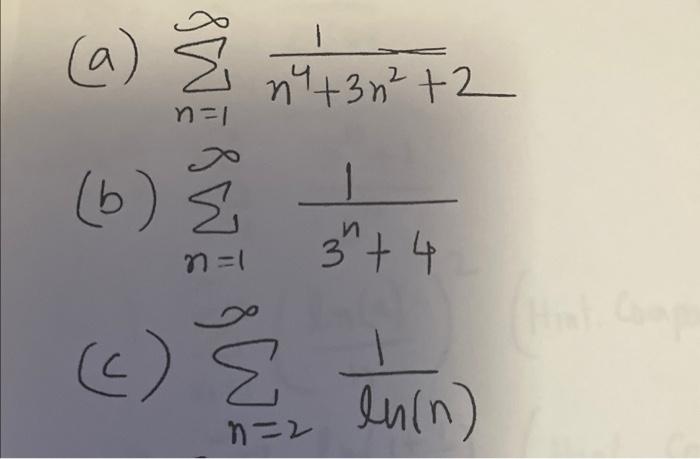 (a) ∞ Σ n=1 1/(n⁴+3n²+2)
(b) ∞ Σ n=1 1/(3ⁿ+4)
(c) ∞ Σ n=2 1/ln(n)
(Hint. Comp